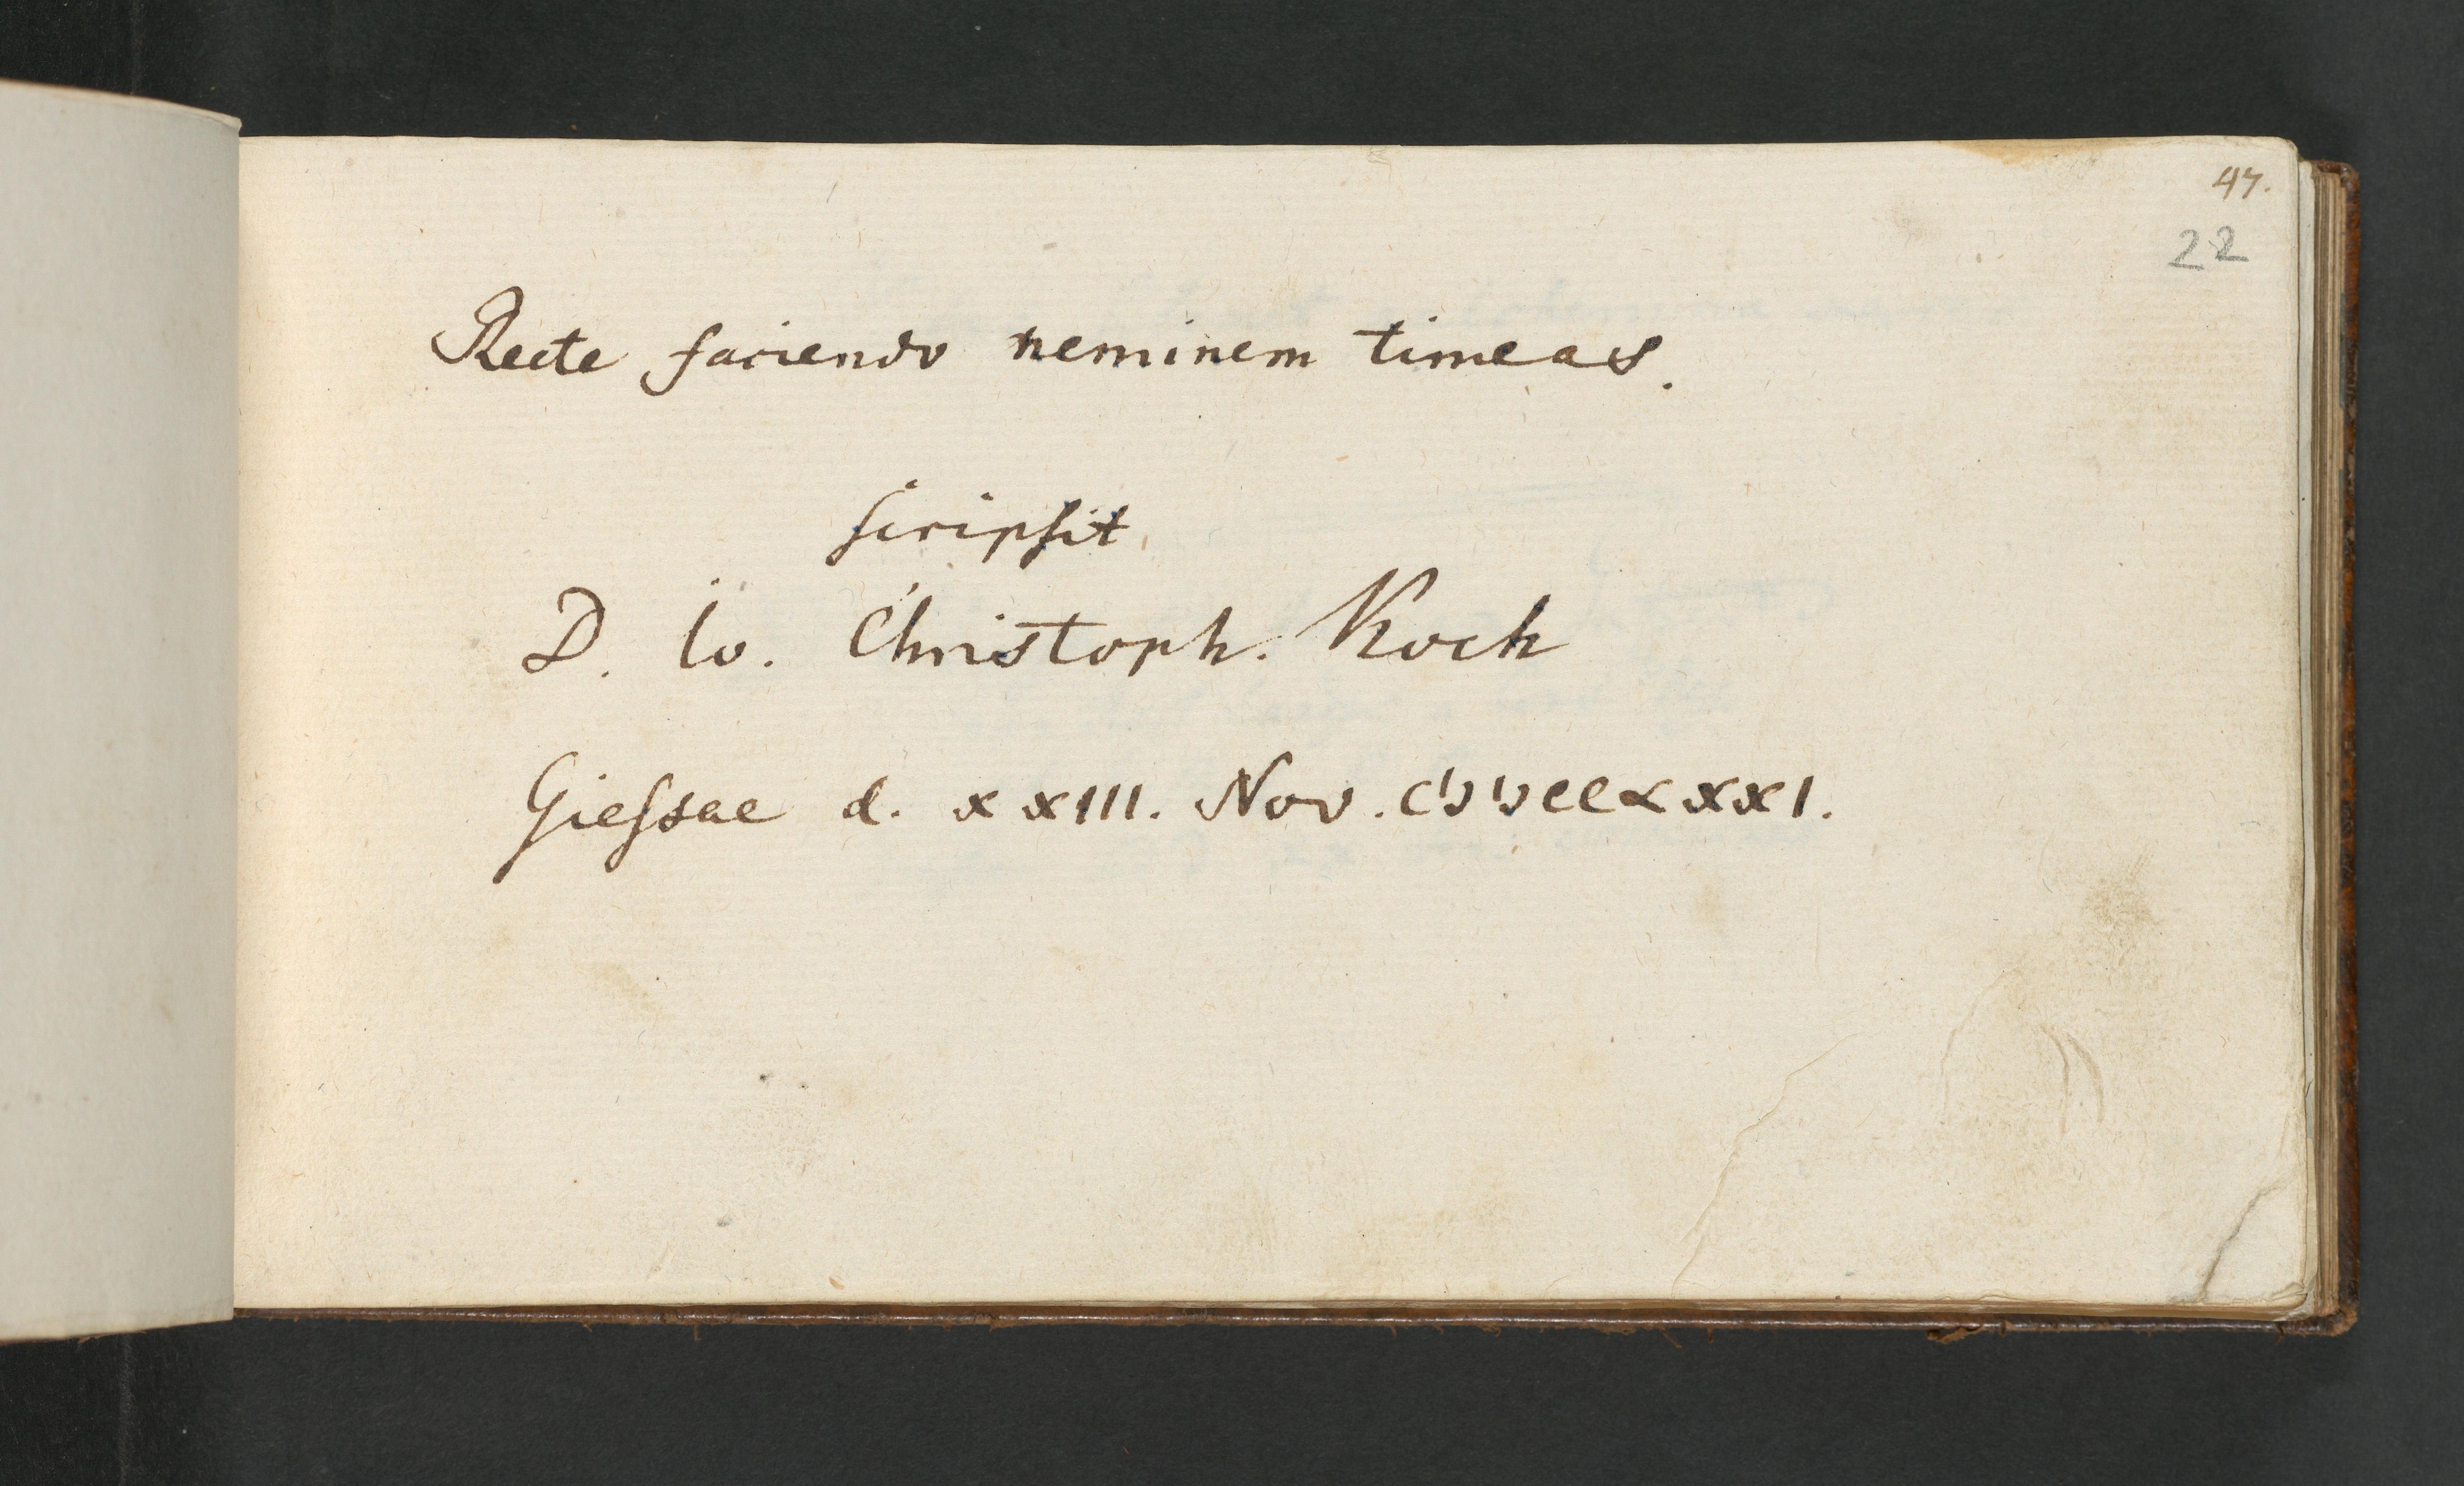 47.
22
Recte faciendo neminem timeas.
scripsit
D. Io. Christoph. Koch
Giessae d. XXIII. Nov. CIↃIↃCCLXXXI.